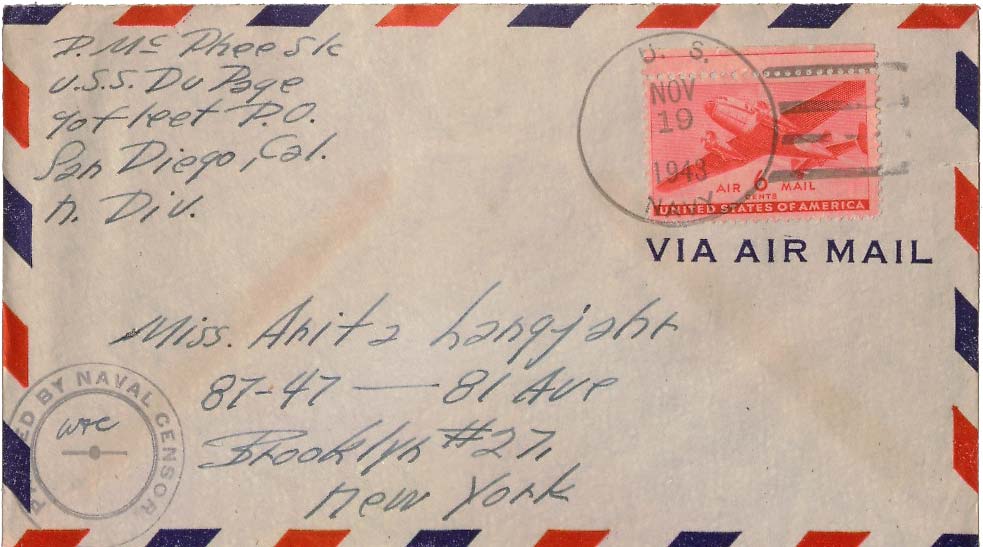 P. Mc Phee S1c
U.S.S. Du Page
℅ Fleet P.O.
San Diego, Cal.
N. Div.
U. S.
NOV
19
1943
NAVY
AIR 6 MAIL
CENTS
UNITED STATES OF AMERICA
VIA AIR MAIL
Miss. Anita Langjahr
87-47 — 81 Ave
Brooklyn #27,
New York
BY NAVAL CENSOR